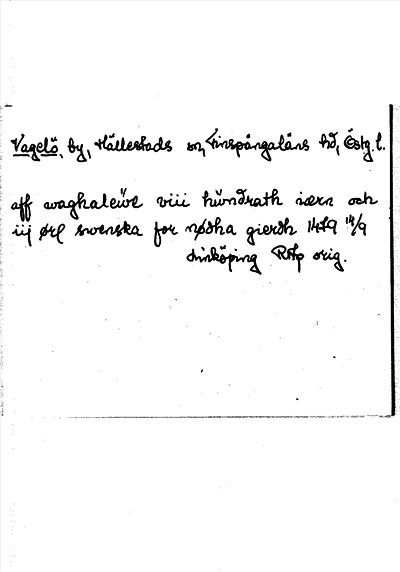 Vagelö, by, Hällestads sn, Finspångaläns hd, Östg. l.
aff waghaleüve viii hündrath iærn och
iij ørl swenska for nødha gierdh 1479 14/9
Linköping RAp orig.